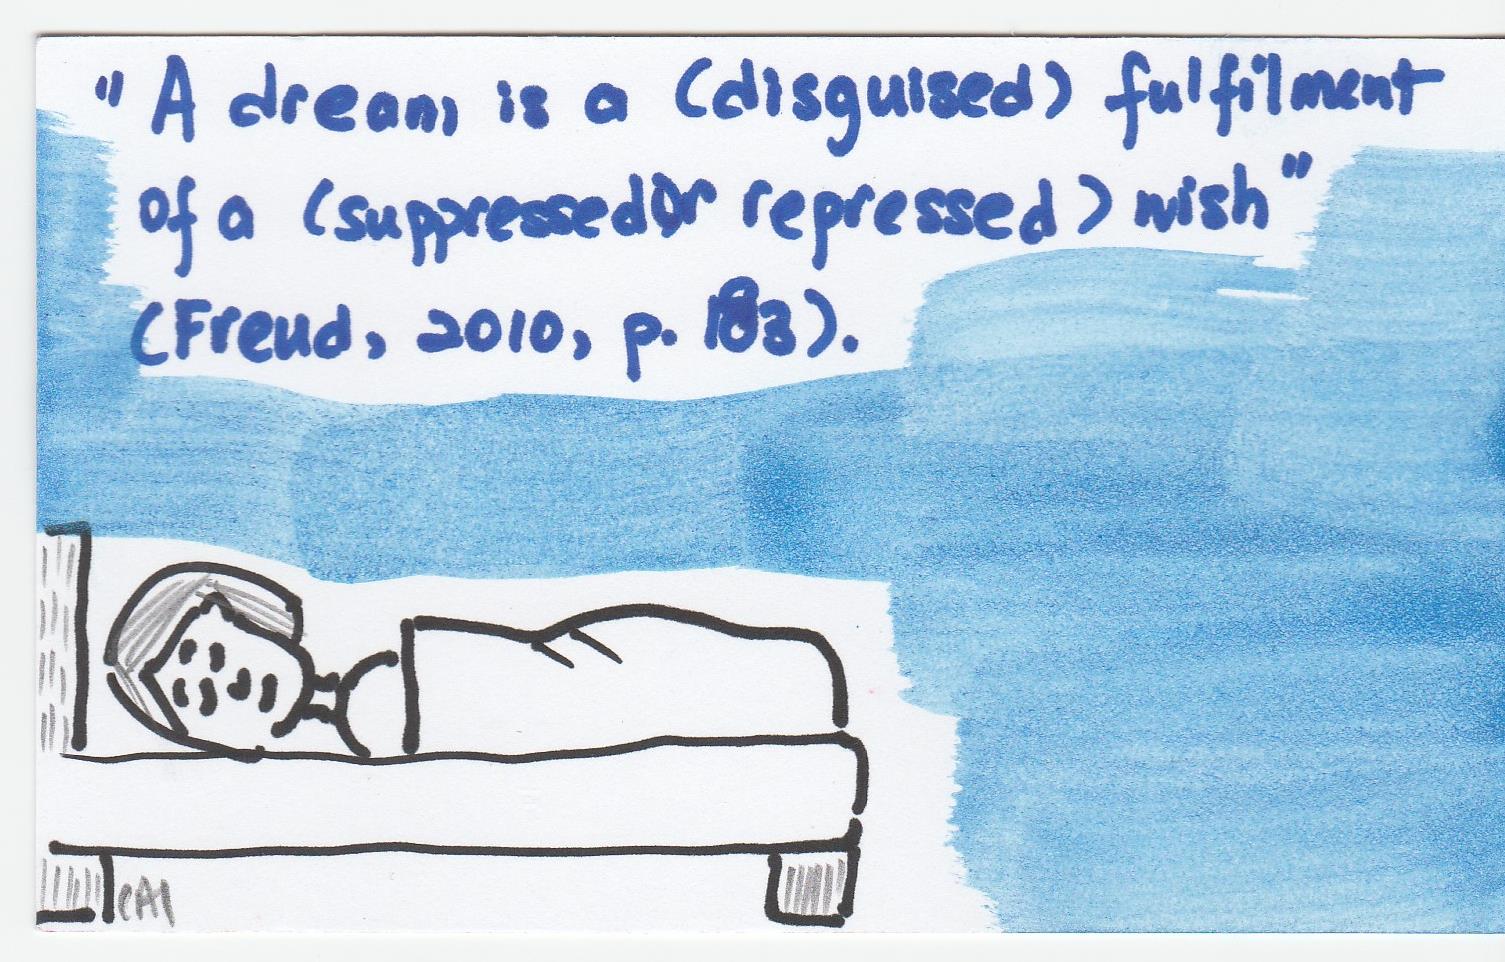 "A dream is a (disguised) fulfilment
of a (suppressed or repressed) wish"
(Freud, 2010, p. 183).